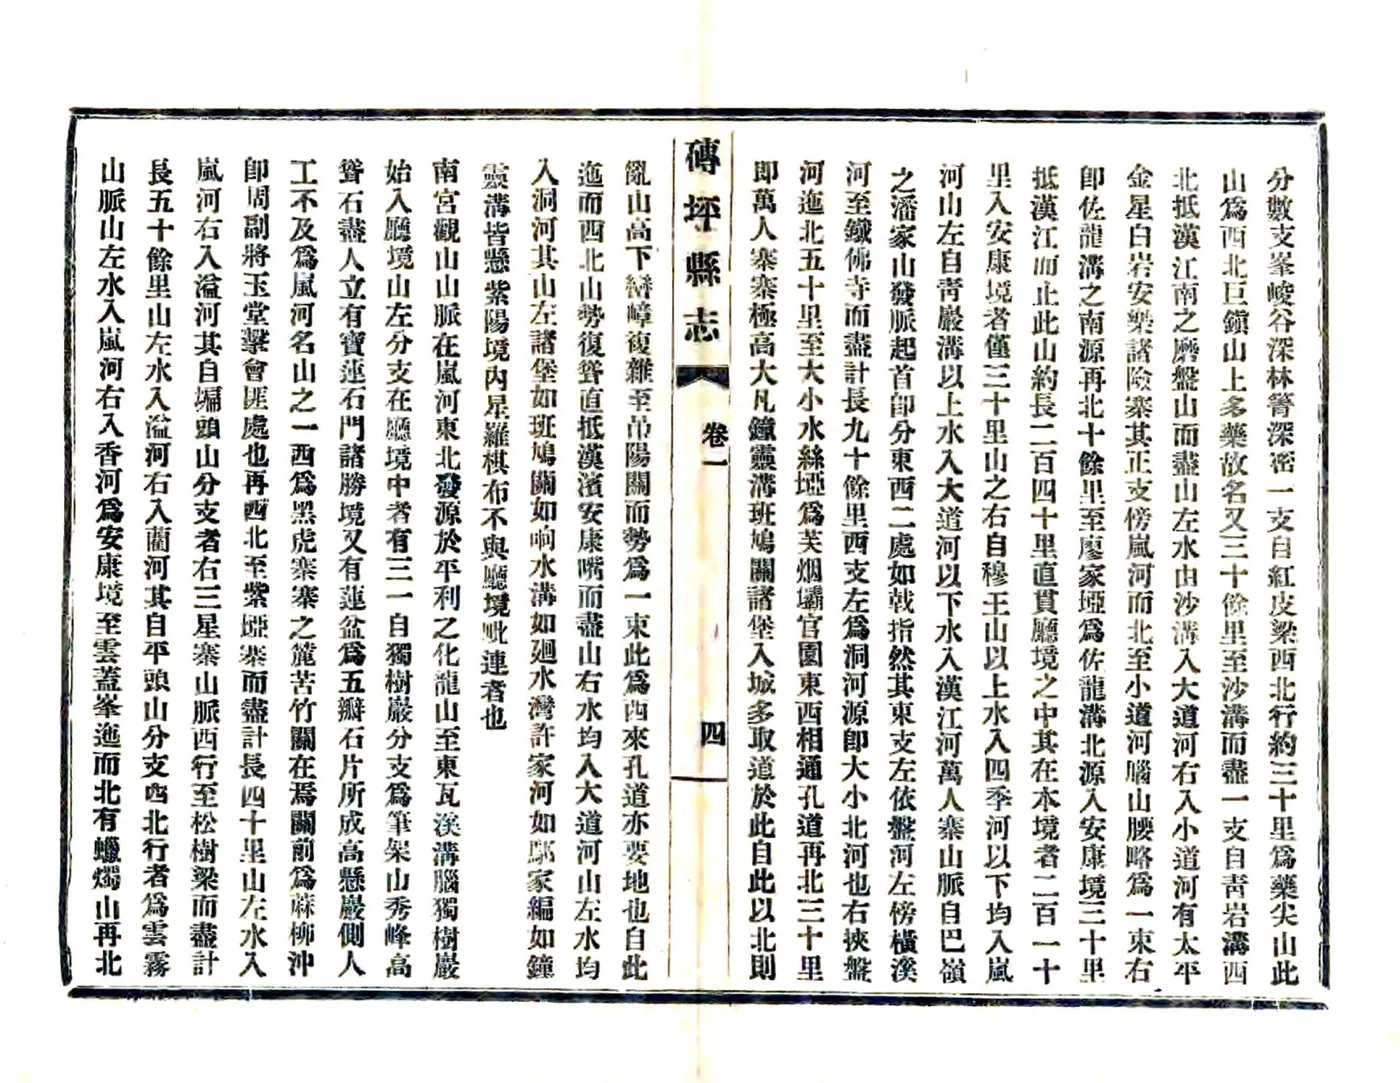 分數支峯峻谷深林箐深密一支自紅皮梁西北行約三十里爲藥尖山此
山爲西北巨鎭山上多藥故名又三十餘里至沙溝而盡一支自靑岩溝西
北抵漢江南之磨盤山而盡山左水由沙溝入大道河右入小道河有太平
金星白岩安樂諸險寨其正支傍嵐河而北至小道河腦山腰略爲一束右
卽佐龍溝之南源再北十餘里至廖家埡爲佐龍溝北源入安康境三十里
抵漢江而止此山約長二百四十里直貫廳境之中其在本境者二百一十
里入安康境者僅三十里山之右自穆王山以上水入四季河以下均入嵐
河山左自靑巖溝以上水入大道河以下水入漢江河萬人寨山脈自巴嶺
之潘家山發脈起首卽分東西二處如戟指然其東支左依盤河左傍橫溪
河至鐵佛寺而盡計長九十餘里西支左爲洞河源卽大小北河也右挾盤
河迤北五十里至大小水絲埡爲芙烟壩官園東西相通孔道再北三十里
即萬人寨寨極高大凡鐘靈溝班鳩關諸堡入城多取道於此自此以北則
磚坪縣志
卷一
四
亂山高下巒嶂複雜至吊陽關而勢爲一束此爲西來孔道亦要地也自此
迤而西北山勢復聳直抵漢濱安康嘴而盡山右水均入大道河山左水均
入洞河其山左諸堡如班鳩關如响水溝如廻水灣許家河如鄢家編如鐘
靈溝皆懸紫陽境內星羅棋布不與廳境毗連者也
南宮觀山山脈在嵐河東北發源於平利之化龍山至東瓦溪溝腦獨樹巖
始入廳境山左分支在廳境中者有三一自獨樹巖分支爲筆架山秀峰高
聳石盡人立有寶蓮石門諸勝境又有蓮盆爲五瓣石片所成高懸巖側人
工不及爲嵐河名山之一西爲黑虎寨寨之麓苦竹關在焉關前爲蔴柳沖
卽周副將玉堂擊會匪處也再西北至紫埡寨而盡計長四十里山左水入
嵐河右入溢河其自塥頭山分支者右三星寨山脈西行至松樹梁而盡計
長五十餘里山左水入溢河右入藺河其自平頭山分支西北行者爲雲霧
山脈山左水入嵐河右入香河爲安康境至雲蓋峯迤而北有蠟燭山再北